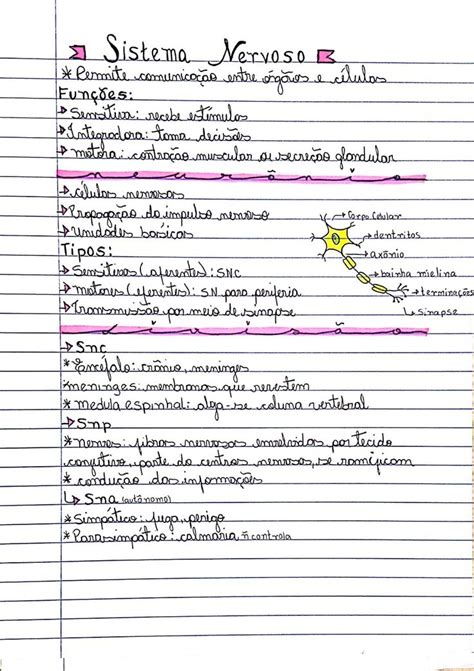 Sistema Nervoso
* Permite comunicação entre órgãos e células
Funções:
→ Sensitiva: recebe estímulos
→ Integradora: toma decisões
→ motora: contração muscular ou secreção glandular
neurônio
→ células nervosas
→ Propagação do impulso nervoso
→ unidades básicas
Tipos:
→ Sensitivos (aferentes): SNC
→ motores (eferentes): SN para periferia
→ Transmissão por meio de sinapse
→ Corpo Celular
→ dentritos
→ axônio
→ bainha mielina
→ terminações
↳ sinapse
Divisão
→ Snc
* Encéfalo: crânio, meninges
meninges: membranas que revestem
* medula espinhal: aloja-se coluna vertebral
→ Snp
* nervos: fibras nervosas envolvidas por tecido
conjutivo, parte do centros nervosos, se ramificam
* condução das informações
↳ Sna (autônomo)
* Simpático: fuga, perigo
* Parasimpático: calmaria ñ controla